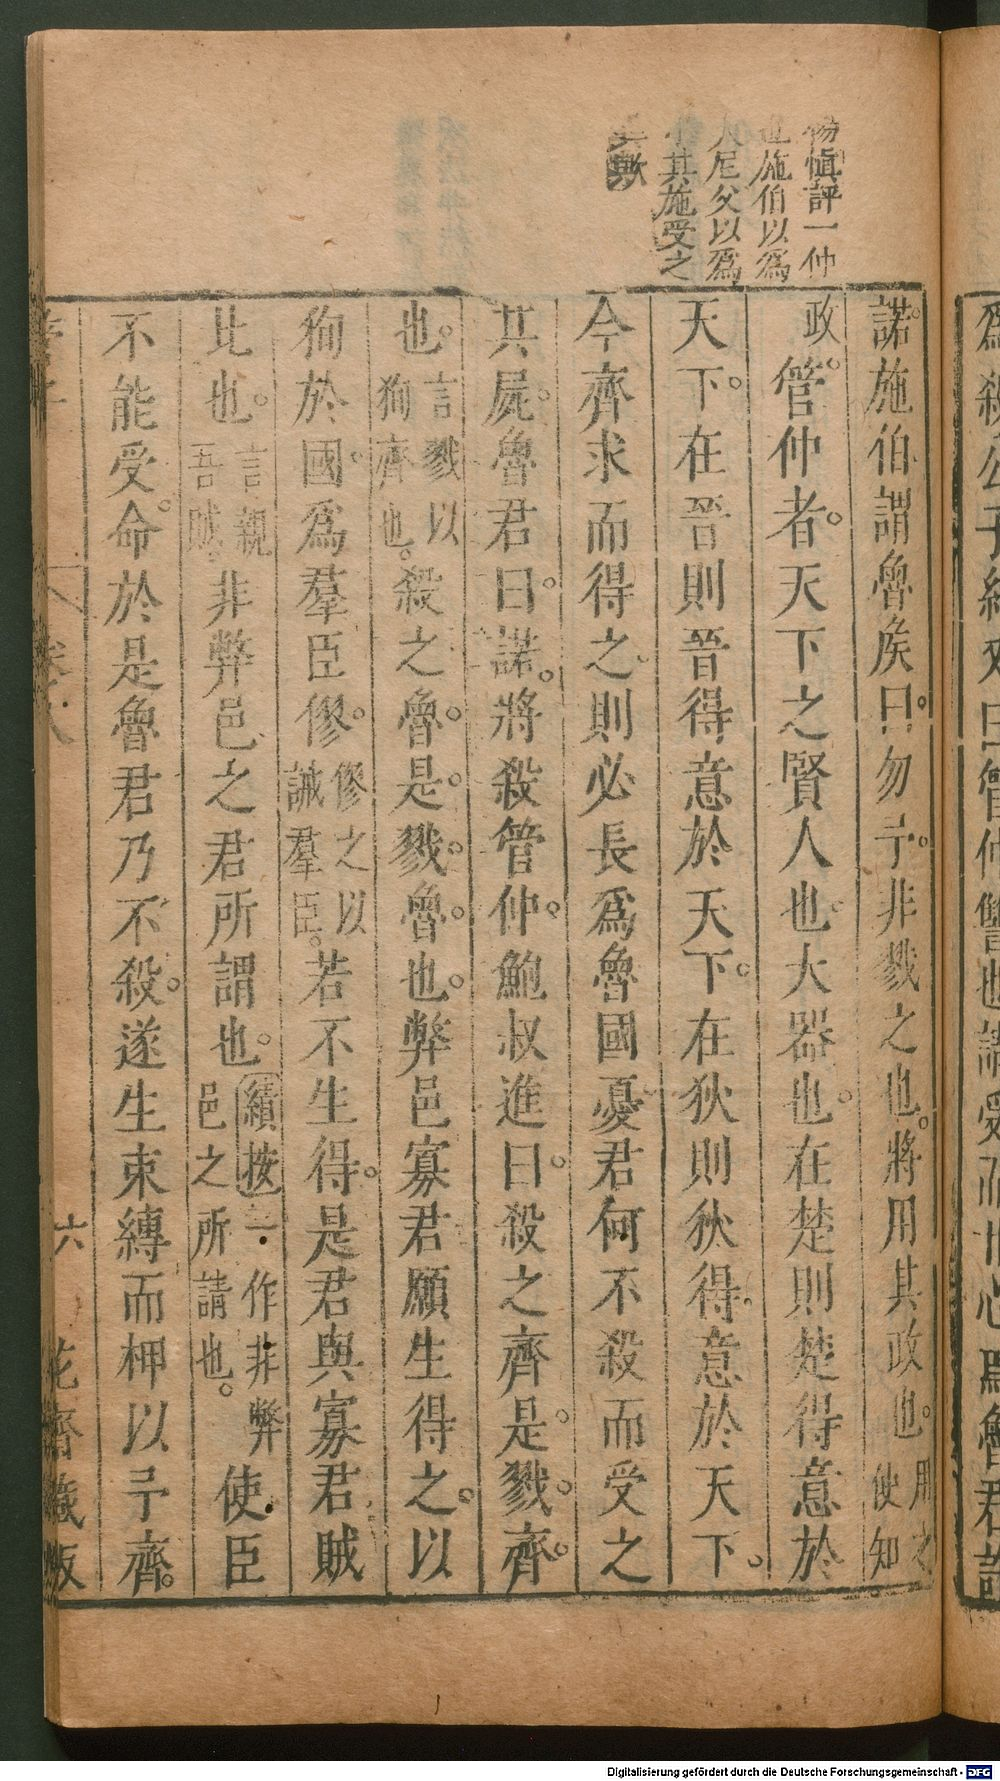 楊慎評一仲
也施伯以爲
人尼父以爲
其施受之
諾施伯謂魯矦曰勿予非戮之也將用其政也用之使知
政管仲者天下之賢人也大器也在楚則楚得意於
天下在晉則晉得意於天下在狄則狄得意於天下
今齊求而得之則必長爲魯國憂君何不殺而受之
其屍魯君曰諾將殺管仲鮑叔進曰殺之齊是戮齊
也言戮以狥齊也殺之魯是戮魯也弊邑寡君願生得之以
狥於國爲羣臣僇僇之以誡羣臣若不生得是君與寡君賊
比也言親吾賊非弊邑之君所謂也績按一作非弊邑之所請也使臣
不能受命於是魯君乃不殺遂生束縛而柙以予齊
六 花齋藏版
爲殺公子糾又曰管仲讐也請受而甘心焉魯君許
Digitalisierung gefördert durch die Deutsche Forschungsgemeinschaft - DFG